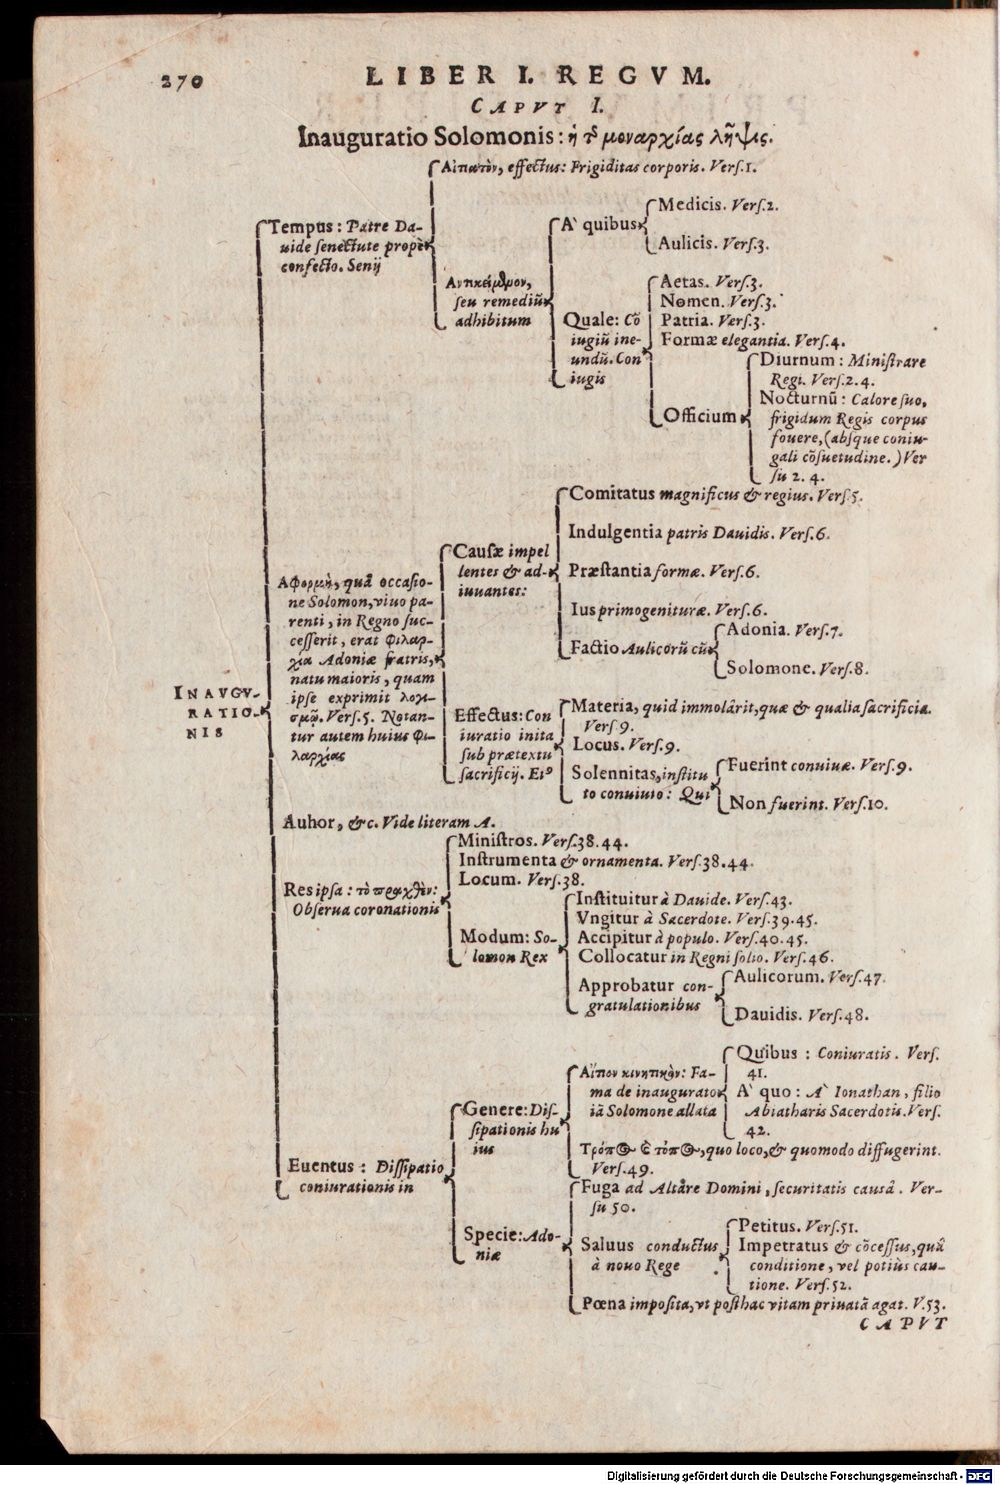 270
LIBER I. REGVM.
CAPVT I.
Inauguratio Solomonis: ἡ τ͂ μοναρχίας λῆψις.
Αἰπατὸν, effectus: Frigiditas corporis. Verſ.1.
Tempus: Patre Da-
uide ſenectute propè
confecto. Senij
Αντικείμθμον,
ſeu remediũ
adhibitum
A` quibus
Medicis. Verſ.2.
Aulicis. Verſ.3.
Quale: Cõ
iugiũ ine-
undũ. Con
iugis
Aetas. Verſ.3.
Nomen. Verſ.3.
Patria. Verſ.3.
Formæ elegantia. Verſ.4.
Officium
Diurnum: Miniſtrare
Regi. Verſ.2.4.
Nocturnũ: Calore ſuo,
frigidum Regis corpus
fouere, (abſque coniu-
gali cõſuetudine.) Ver
ſu 2. 4.
INAVGV-
RATIO-
NIS
Αφορμὴ, quâ occaſio-
ne Solomon, viuo pa-
renti, in Regno ſuc-
ceſſerit, erat φιλαρ-
χία Adoniæ fratris,
natu maioris, quam
ipſe exprimit λογι-
σμῷ. Verſ.5. Notan-
tur autem huius φι-
λαρχίας
Cauſæ impel
lentes & ad-
iuuantes:
Comitatus magnificus & regius. Verſ.5.
Indulgentia patris Dauidis. Verſ.6.
Præſtantia formæ. Verſ.6.
Ius primogenituræ. Verſ.6.
Factio Aulicorũ cũ
Adonia. Verſ.7.
Solomone. Verſ.8.
Effectus: Con
iuratio inita
ſub prætextu
ſacrificij. Eiꝰ
Materia, quid immolârit, quæ & qualia ſacrificia.
Verſ 9.
Locus. Verſ.9.
Solennitas, inſtitu
to conuiuio: Qui
Fuerint conuiuæ. Verſ.9.
Non fuerint. Verſ.10.
Auhor, &c. Vide literam A.
Res ipſa: τὸ πραχθὲν:
Obſerua coronationis
Miniſtros. Verſ.38.44.
Inſtrumenta & ornamenta. Verſ.38.44.
Locum. Verſ.38.
Modum: So-
lomon Rex
Inſtituitur à Dauide. Verſ.43.
Vngitur à Sacerdote. Verſ.39.45.
Accipitur à populo. Verſ.40.45.
Collocatur in Regni ſolio. Verſ.46.
Approbatur con-
gratulationibus
Aulicorum. Verſ.47.
Dauidis. Verſ.48.
Euentus: Diſſipatio
coniurationis in
Genere: Diſ-
ſipationis hu
ius
Αἴτιον κινητικὸν: Fa-
ma de inaugurato
iã Solomone allata
Quibus: Coniuratis. Verſ.
41.
A` quo: A` Ionathan, filio
Abiatharis Sacerdotis. Verſ.
42.
Τρόπος & τόπος, quo loco, & quomodo diffugerint.
Verſ.49.
Specie: Ado-
niæ
Fuga ad Altare Domini, ſecuritatis causâ. Ver-
ſu 50.
Saluus conductus
à nouo Rege
Petitus. Verſ.51.
Impetratus & cõceſſus, quâ
conditione, vel potiùs cau-
tione. Verſ.52.
Pœna impoſita, vt poſthac vitam priuatã agat. V.53.
CAPVT
Digitalisierung gefördert durch die Deutsche Forschungsgemeinschaft - DFG